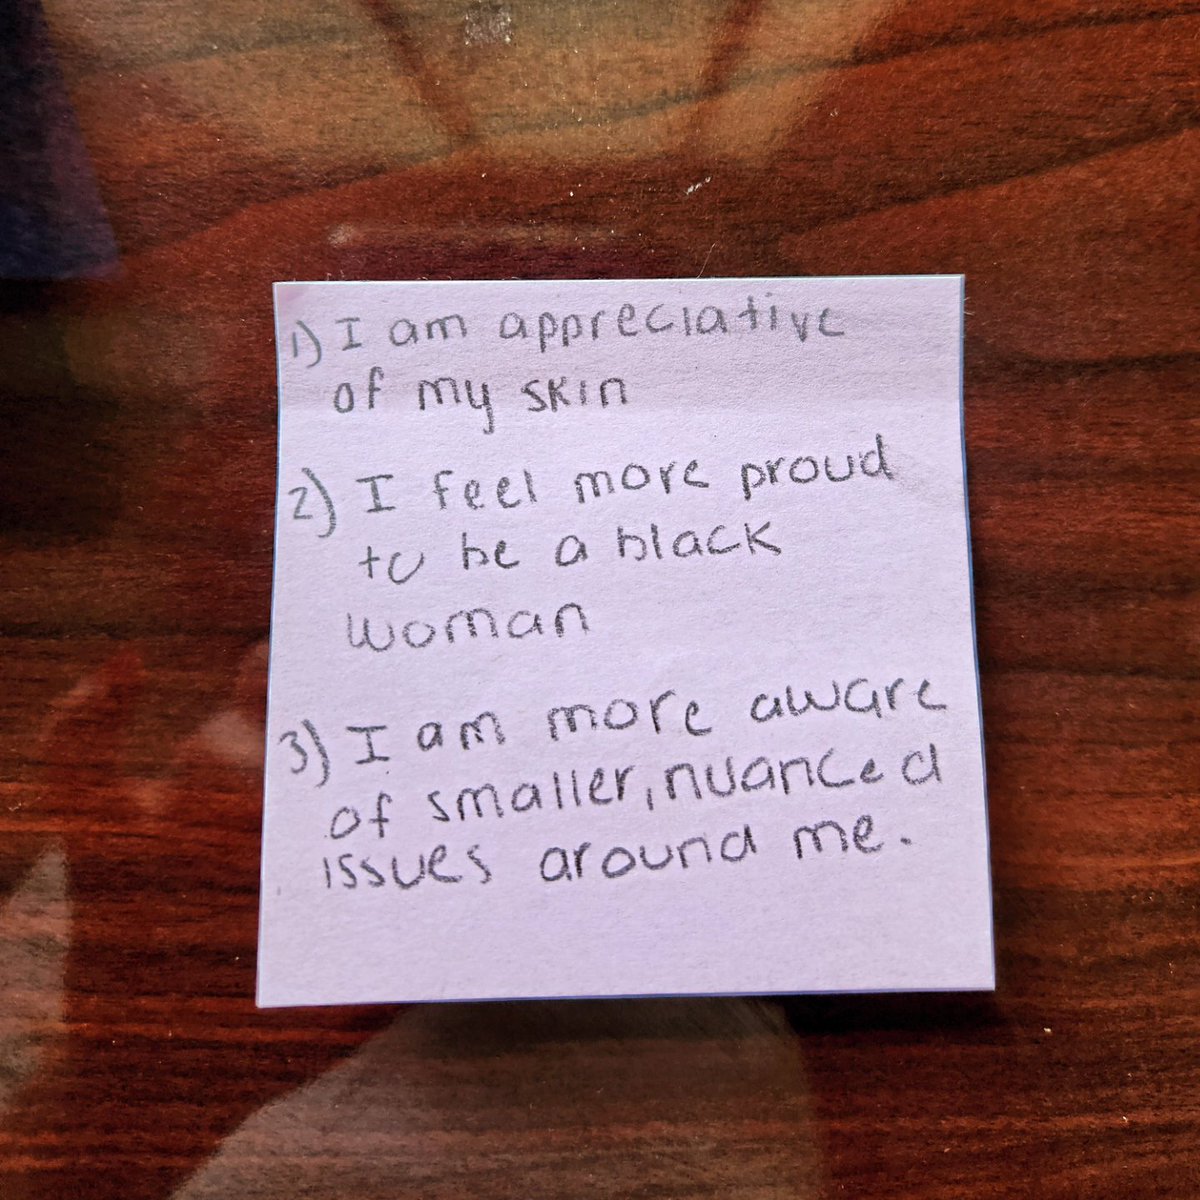 1) I am appreciative
of my skin
2) I feel more proud
to be a black
woman
3) I am more aware
of smaller, nuanced
issues around me.